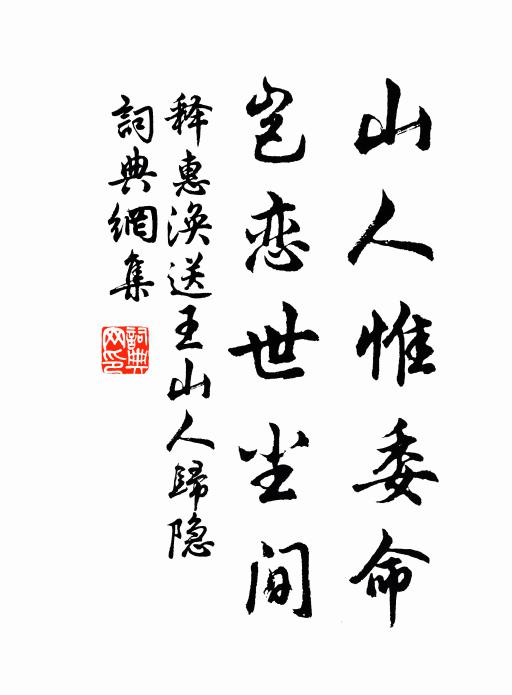 山人惟委命
岂恋世尘间
释惠涣送王山人歸隐
詞典網集
詞典网印